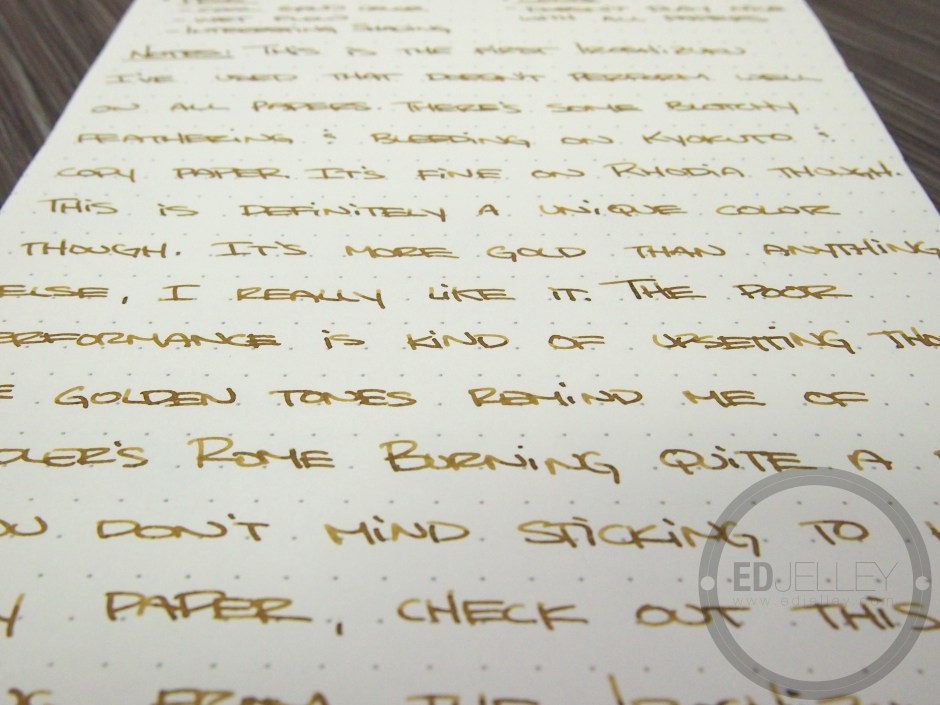 - INTERESTING SHADING
WITH ALL PAPERS
NOTES: THIS IS THE FIRST IROSHIZUKU
I'VE USED THAT DOESN'T PERFORM WELL
ON ALL PAPERS. THERE'S SOME BLOTCHY
FEATHERING & BLEEDING ON KYOKUTO &
COPY PAPER. IT'S FINE ON RHODIA THOUGH.
THIS IS DEFINITELY A UNIQUE COLOR
THOUGH. IT'S MORE GOLD THAN ANYTHING
ELSE, I REALLY LIKE IT. THE POOR
ERFORMANCE IS KIND OF UPSETTING THO
E GOLDEN TONES REMIND ME OF
DLER'S ROME BURNING QUITE A
OU DON'T MIND STICKING TO
Y PAPER, CHECK OUT THIS
FROM THE IROSHIZU
EDJELLEY
www.edjelley.com